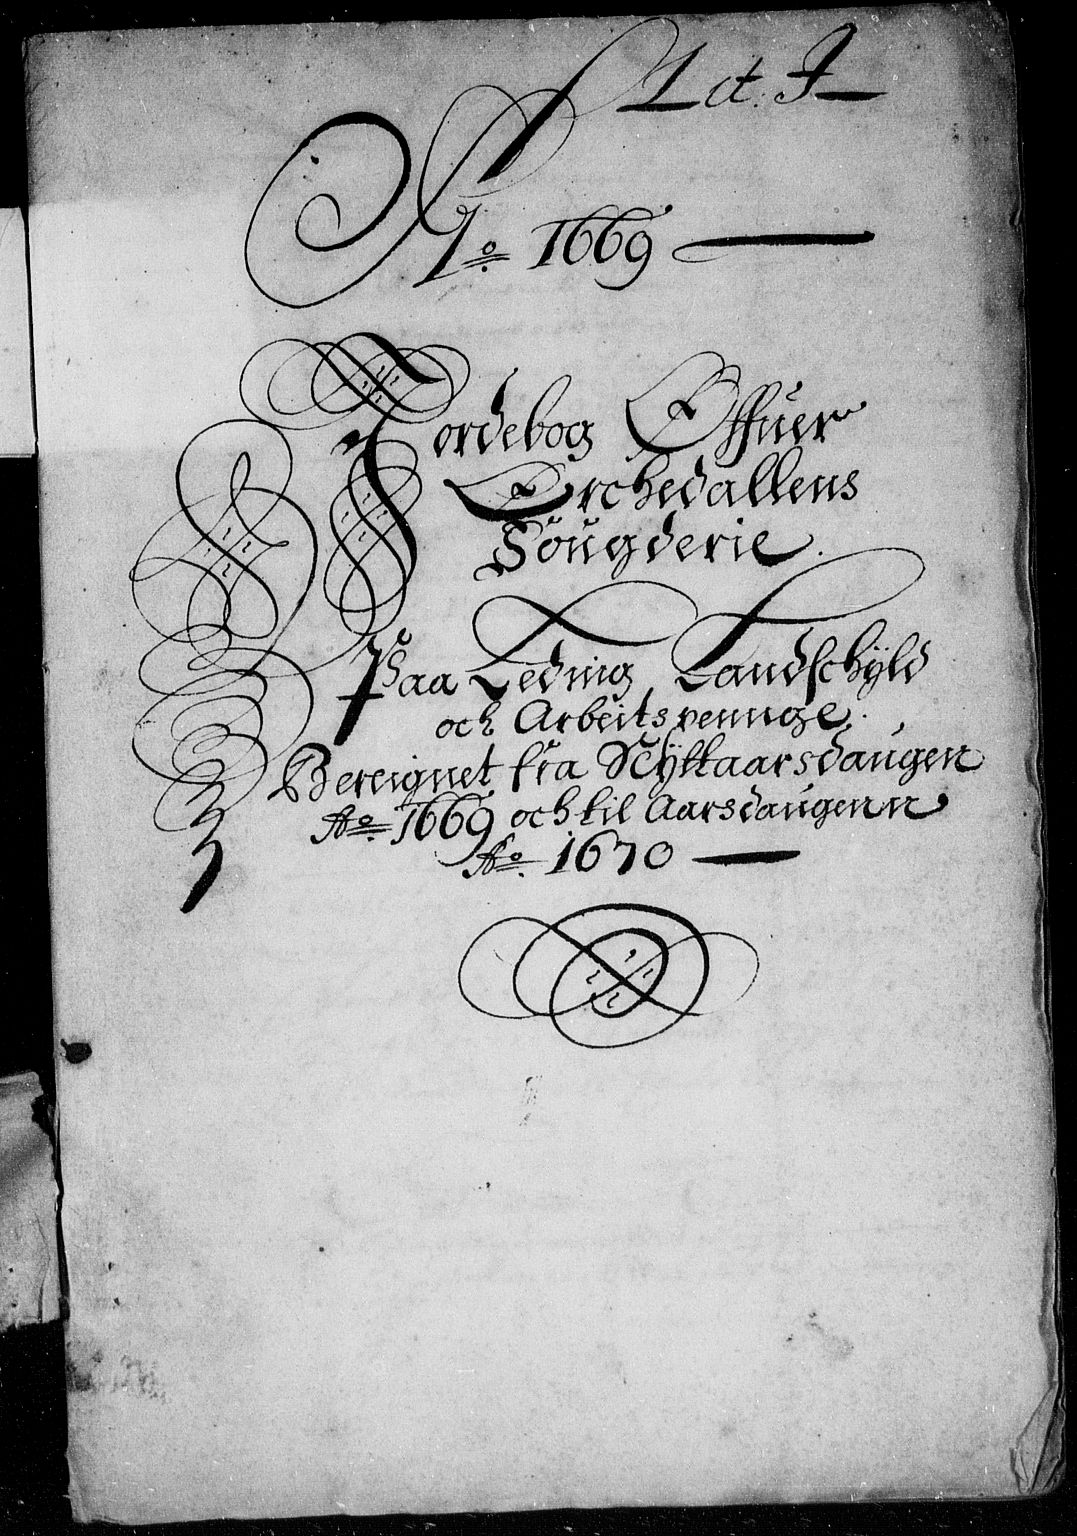 Lit: J
Ao. 1669
Jordebog Offuer
Orchedallens
Fougderie.
Paa Leding, Landschÿld
och Arbeitspennge.
Bereignet fra Nÿttaarsdaugen
Ao. 1669 och til Aarsdaugenn
Ao. 1670